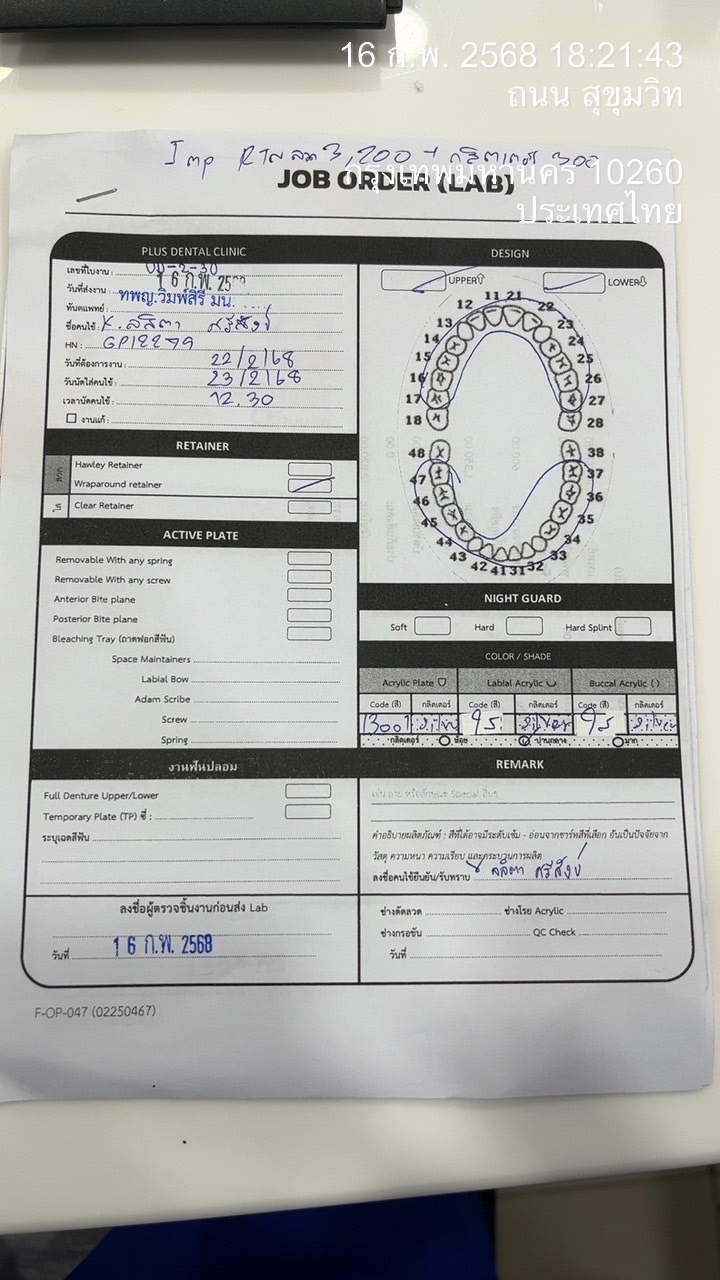 16 ก.พ. 2568 18:21:43
ถนน สุขุมวิท
กรุงเทพมหานคร 10260
ประเทศไทย
Imp ลวด 3,200 + กลิตเตอร์ 300
JOB ORDER (LAB)
PLUS DENTAL CLINIC
เลขที่ใบงาน :
วันที่ส่งงาน : 16 ก.พ. 25
ทันตแพทย์ : ทพญ.วิมพ์สิริ มน.
ชื่อคนไข้ : K. ลลิตา ศรีสังข์
HN : GP12279
วันที่ต้องการงาน : 22/2/68
วันนัดใส่คนไข้ : 23/2/68
เวลานัดคนไข้ : 12.30
งานแก้ :
RETAINER
ลวด
Hawley Retainer
Wraparound retainer
ใส
Clear Retainer
ACTIVE PLATE
Removable With any spring
Removable With any screw
Anterior Bite plane
Posterior Bite plane
Bleaching Tray (ถาดฟอกสีฟัน)
Space Maintainers
Labial Bow
Adam Scribe
Screw
Spring
งานฟันปลอม
Full Denture Upper/Lower
Temporary Plate (TP) ซี่ :
ระบุเฉดสีฟัน
ลงชื่อผู้ตรวจชิ้นงานก่อนส่ง Lab
วันที่ 16 ก.พ. 2568
DESIGN
UPPER LOWER
11 21
12 22
13 23
14 24
15 25
16 26
17 27
18 28
48 38
47 37
46 36
45 35
44 34
43 33
42 41 31 32
NIGHT GUARD
Soft Hard Hard Splint
COLOR / SHADE
Acrylic Plate Labial Acrylic Buccal Acrylic ( )
Code (สี) กลิตเตอร์ Code (สี) กลิตเตอร์ Code (สี) กลิตเตอร์
silver silver silver
กลิตเตอร์ น้อย ปานกลาง มาก
REMARK
เช่น ลาย หรือลักษณะ Special อื่นๆ
คำอธิบายผลิตภัณฑ์ : สีที่ได้อาจมีระดับเข้ม - อ่อนจากชาร์ทสีที่เลือก อันเป็นปัจจัยจาก
วัสดุ ความหนา ความเรียบ และกระบวนการผลิต
ลงชื่อคนไข้ยืนยัน/รับทราบ ลลิตา ศรีสังข์
ช่างดัดลวด ช่างโรย Acrylic
ช่างกรอขัน QC Check
วันที่
F-OP-047 (02250467)